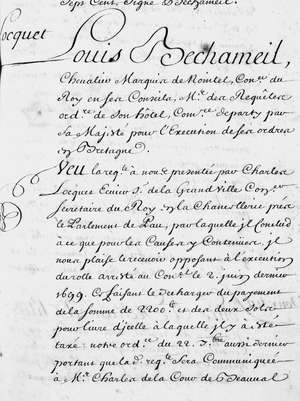 Sept Cent, Signe Bechameil.
Locquet
Louis Bechameil,
Chevalier Marquis de Nointel, Con.er du
Roy en ses Conseils, M.e des Requestes
ord.re de son hôtel, Com.re departy par
Sa Majesté pour l'Execution de ses ordres
en Bretagne.
Veu la req.te à nous presentée par Charles
Locquet Ecuier S.r de la Grand Ville Con.er
Secretaire du Roy en la Chancellerie pres
le Parlement de Pau, par laquelle jl Conclud
à ce que pour les Causes y Contenües, jl
nous plaise le recevoir opposant à l'execution
du rolle arresté au Con.el le 2. juin dernier
1699. Ce faisant le decharger du payement
de la somme de 2200.lt et des deux Sols
pour livre d'jcelle à laquelle jl y a été
taxé: notre ord.ce du 22. 7.bre aussi dernier
portant que lad. req.te Sera Communiqueé
à M.e Charles de la Cour de Beauval